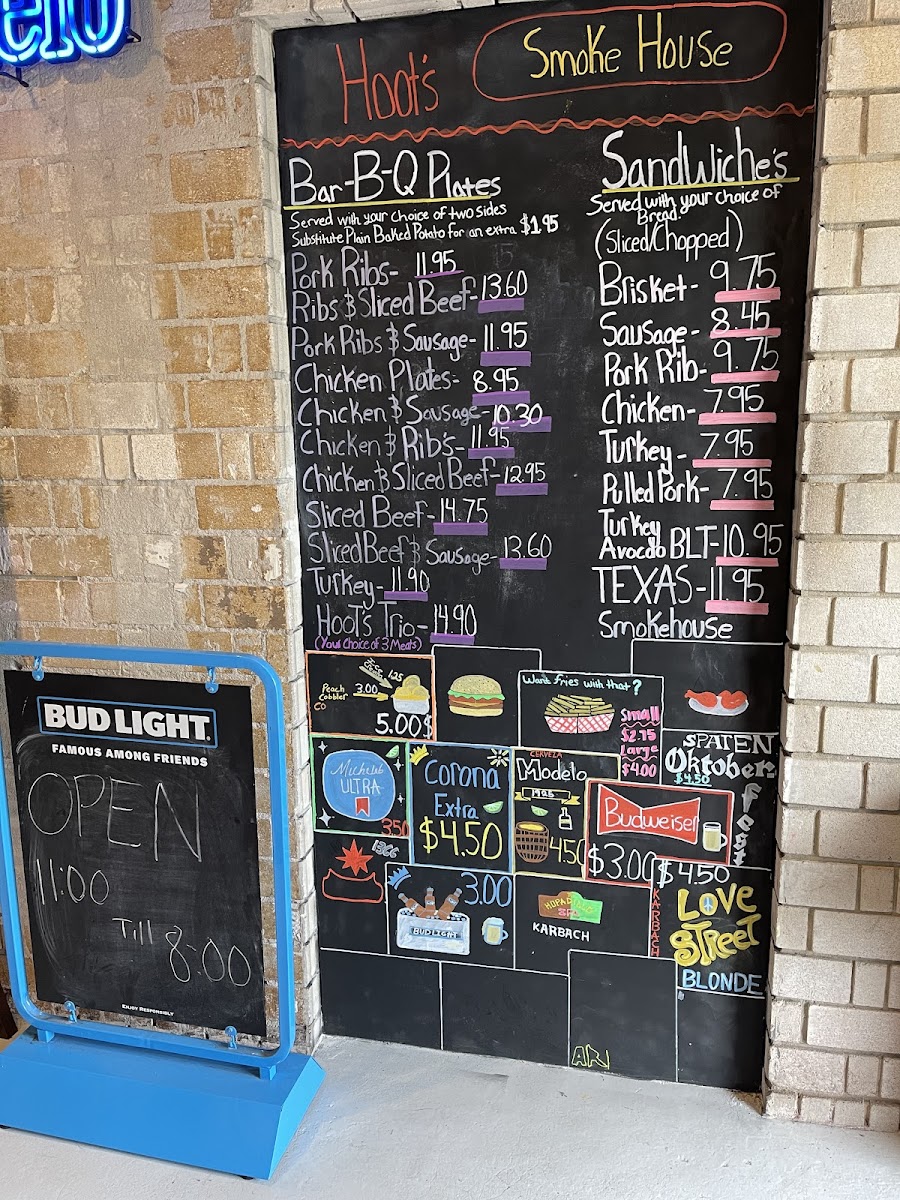 elo
Hoot's
Smoke House
Bar-B-Q Plates
Served with your choice of two sides
Substitute Plain Baked Potato for an extra $1.95
Pork Ribs- 11.95
Ribs & Sliced Beef- 13.60
Pork Ribs & Sausage- 11.95
Chicken Plates- 8.95
Chicken & Sausage- 10.30
Chicken & Rib's- 11.95
Chicken & Sliced Beef- 12.95
Sliced Beef- 14.75
Sliced Beef & Sausage- 13.60
Turkey- 11.90
Hoot's Trio- 14.90
(Your Choice of 3 Meats)
Sandwiche's
Served with your choice of
Bread
(Sliced/Chopped)
Brisket- 9.75
Sausage- 8.45
Pork Rib- 9.75
Chicken- 7.95
Turkey- 7.95
Pulled Pork- 7.95
Turkey
Avocado BLT- 10.95
TEXAS- 11.95
Smokehouse
1.25
Peach
Cobbler
3.00
5.00$
Want fries with that?
Small
$2.75
Large
$4.00
Michelob
ULTRA
350
Corona
Extra
$4.50
CERVEZA
Modelo
1925
4.50
SPATEN
Oktoberfest
$4.50
Budweiser
$3.00
$4.50
1366
3.00
BUD LIGHT
KARBACH
KARBACH
LOVE
STREET
BLONDE
BUD LIGHT
FAMOUS AMONG FRIENDS
OPEN
11:00
Till
8:00
ENJOY RESPONSIBLY